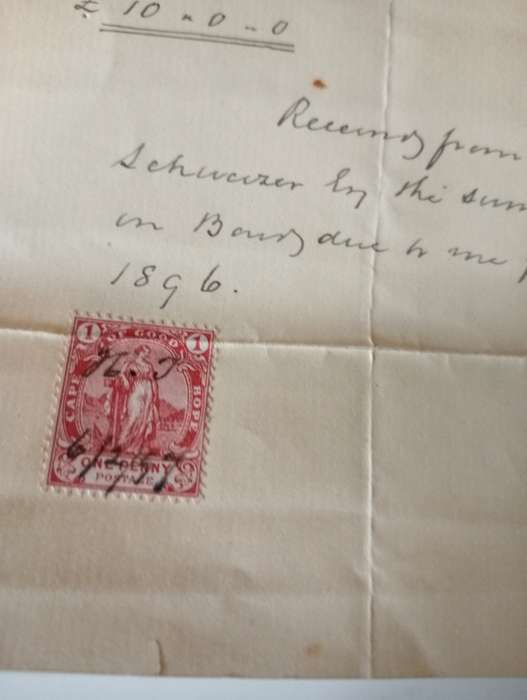 £ 10 - 0 - 0
Received from
Schweizer Esq the sum
on Bond due to me
1896.
1 OF GOOD 1
CAPE HOPE
ONE PENNY
POSTAGE